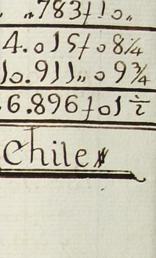 „783ƒ10„
4.015ƒ08¼
10.911„09¾
6.896ƒ01½
Chile